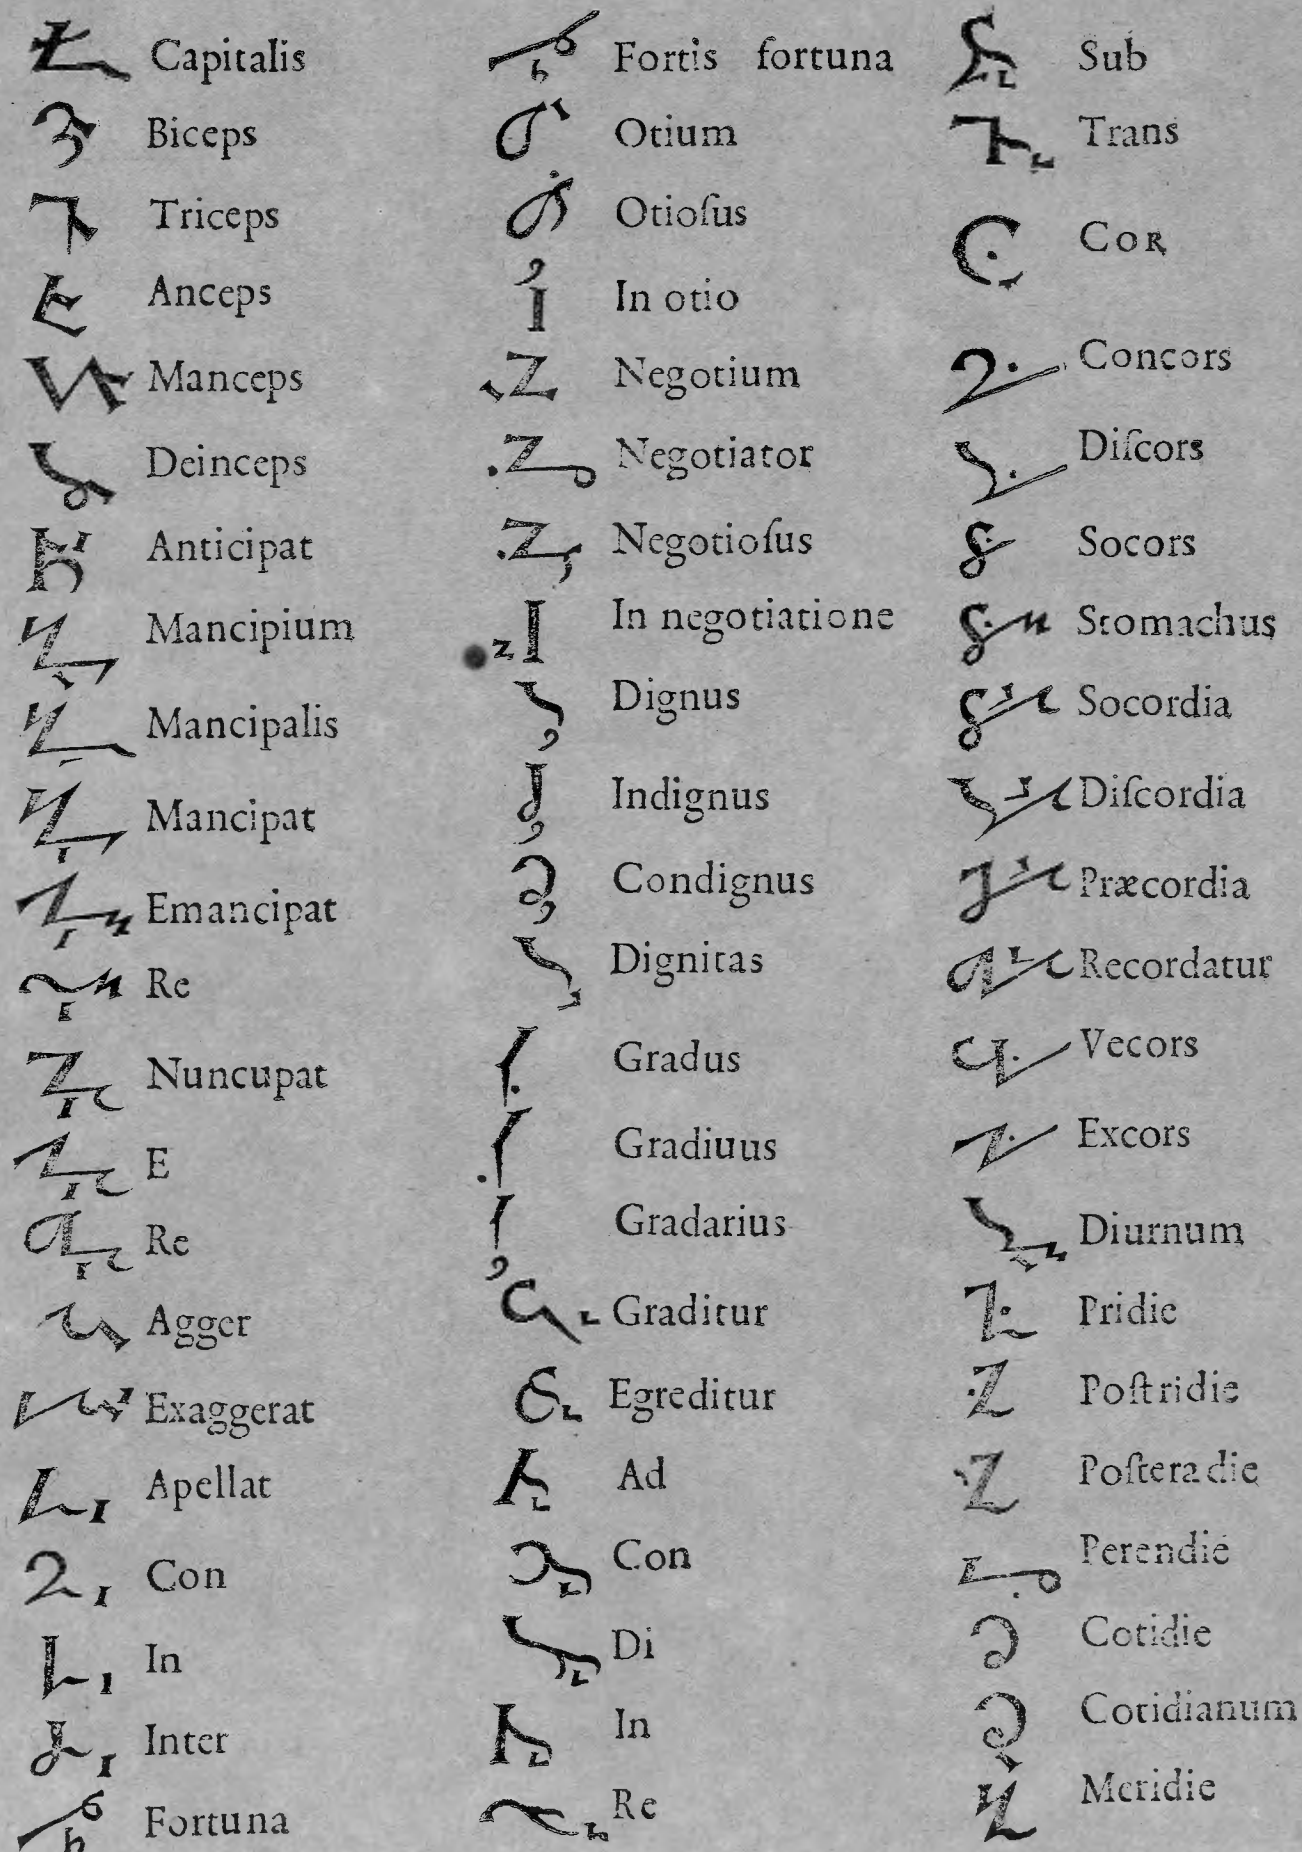 Capitalis
Biceps
Triceps
Anceps
Manceps
Deinceps
Anticipat
Mancipium
Mancipalis
Mancipat
Emancipat
Re
Nuncupat
E
Re
Agger
Exaggerat
Apellat
Con
In
Inter
Fortuna
Fortis fortuna
Otium
Otioſus
In otio
Negotium
Negotiator
Negotioſus
In negotiatione
Dignus
Indignus
Condignus
Dignitas
Gradus
Gradiuus
Gradarius
Graditur
Egreditur
Ad
Con
Di
In
Re
Sub
Trans
COR
Concors
Diſcors
Socors
Stomachus
Socordia
Diſcordia
Præcordia
Recordatur
Vecors
Excors
Diurnum
Pridie
Poſtridie
Poſtera die
Perendie
Cotidie
Cotidianum
Meridie